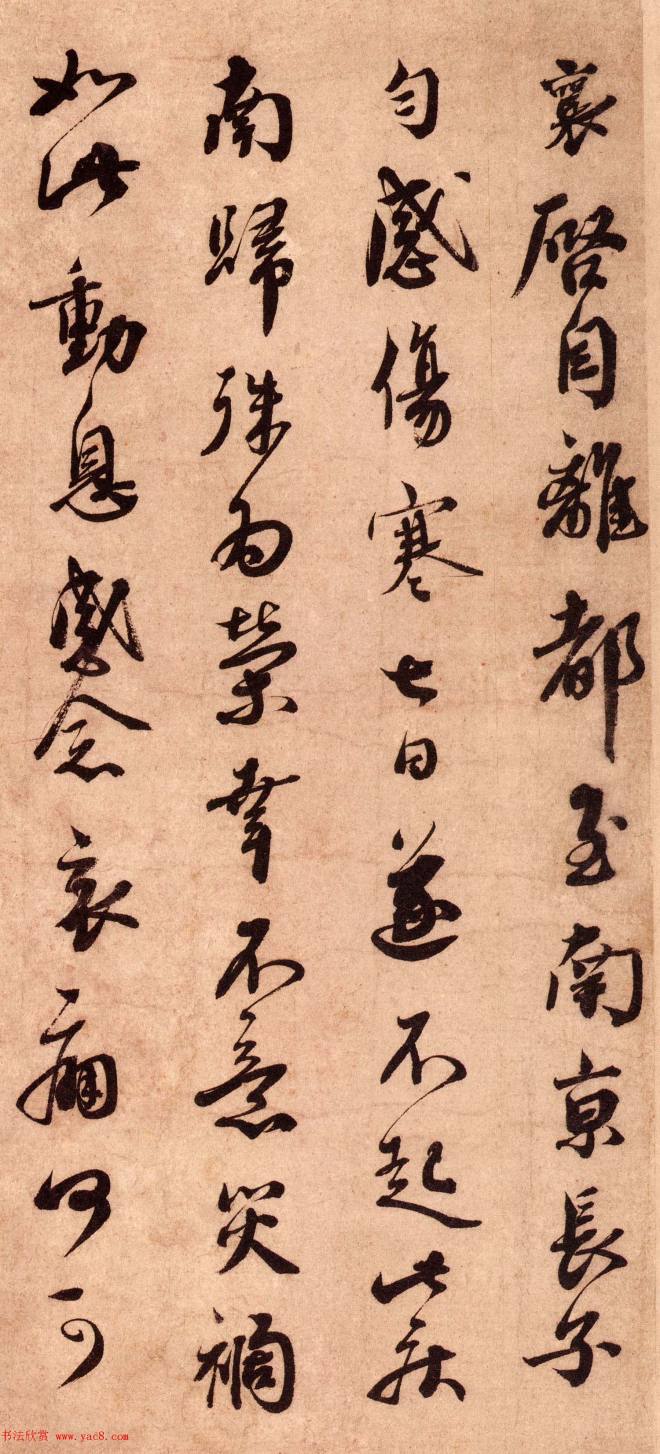 襄啓自離都至南京長子
勻感傷寒七日遂不起此疾
南歸殊爲榮幸不意災禍
如此動息感念哀痛何可
书法欣赏 www.yac8.com